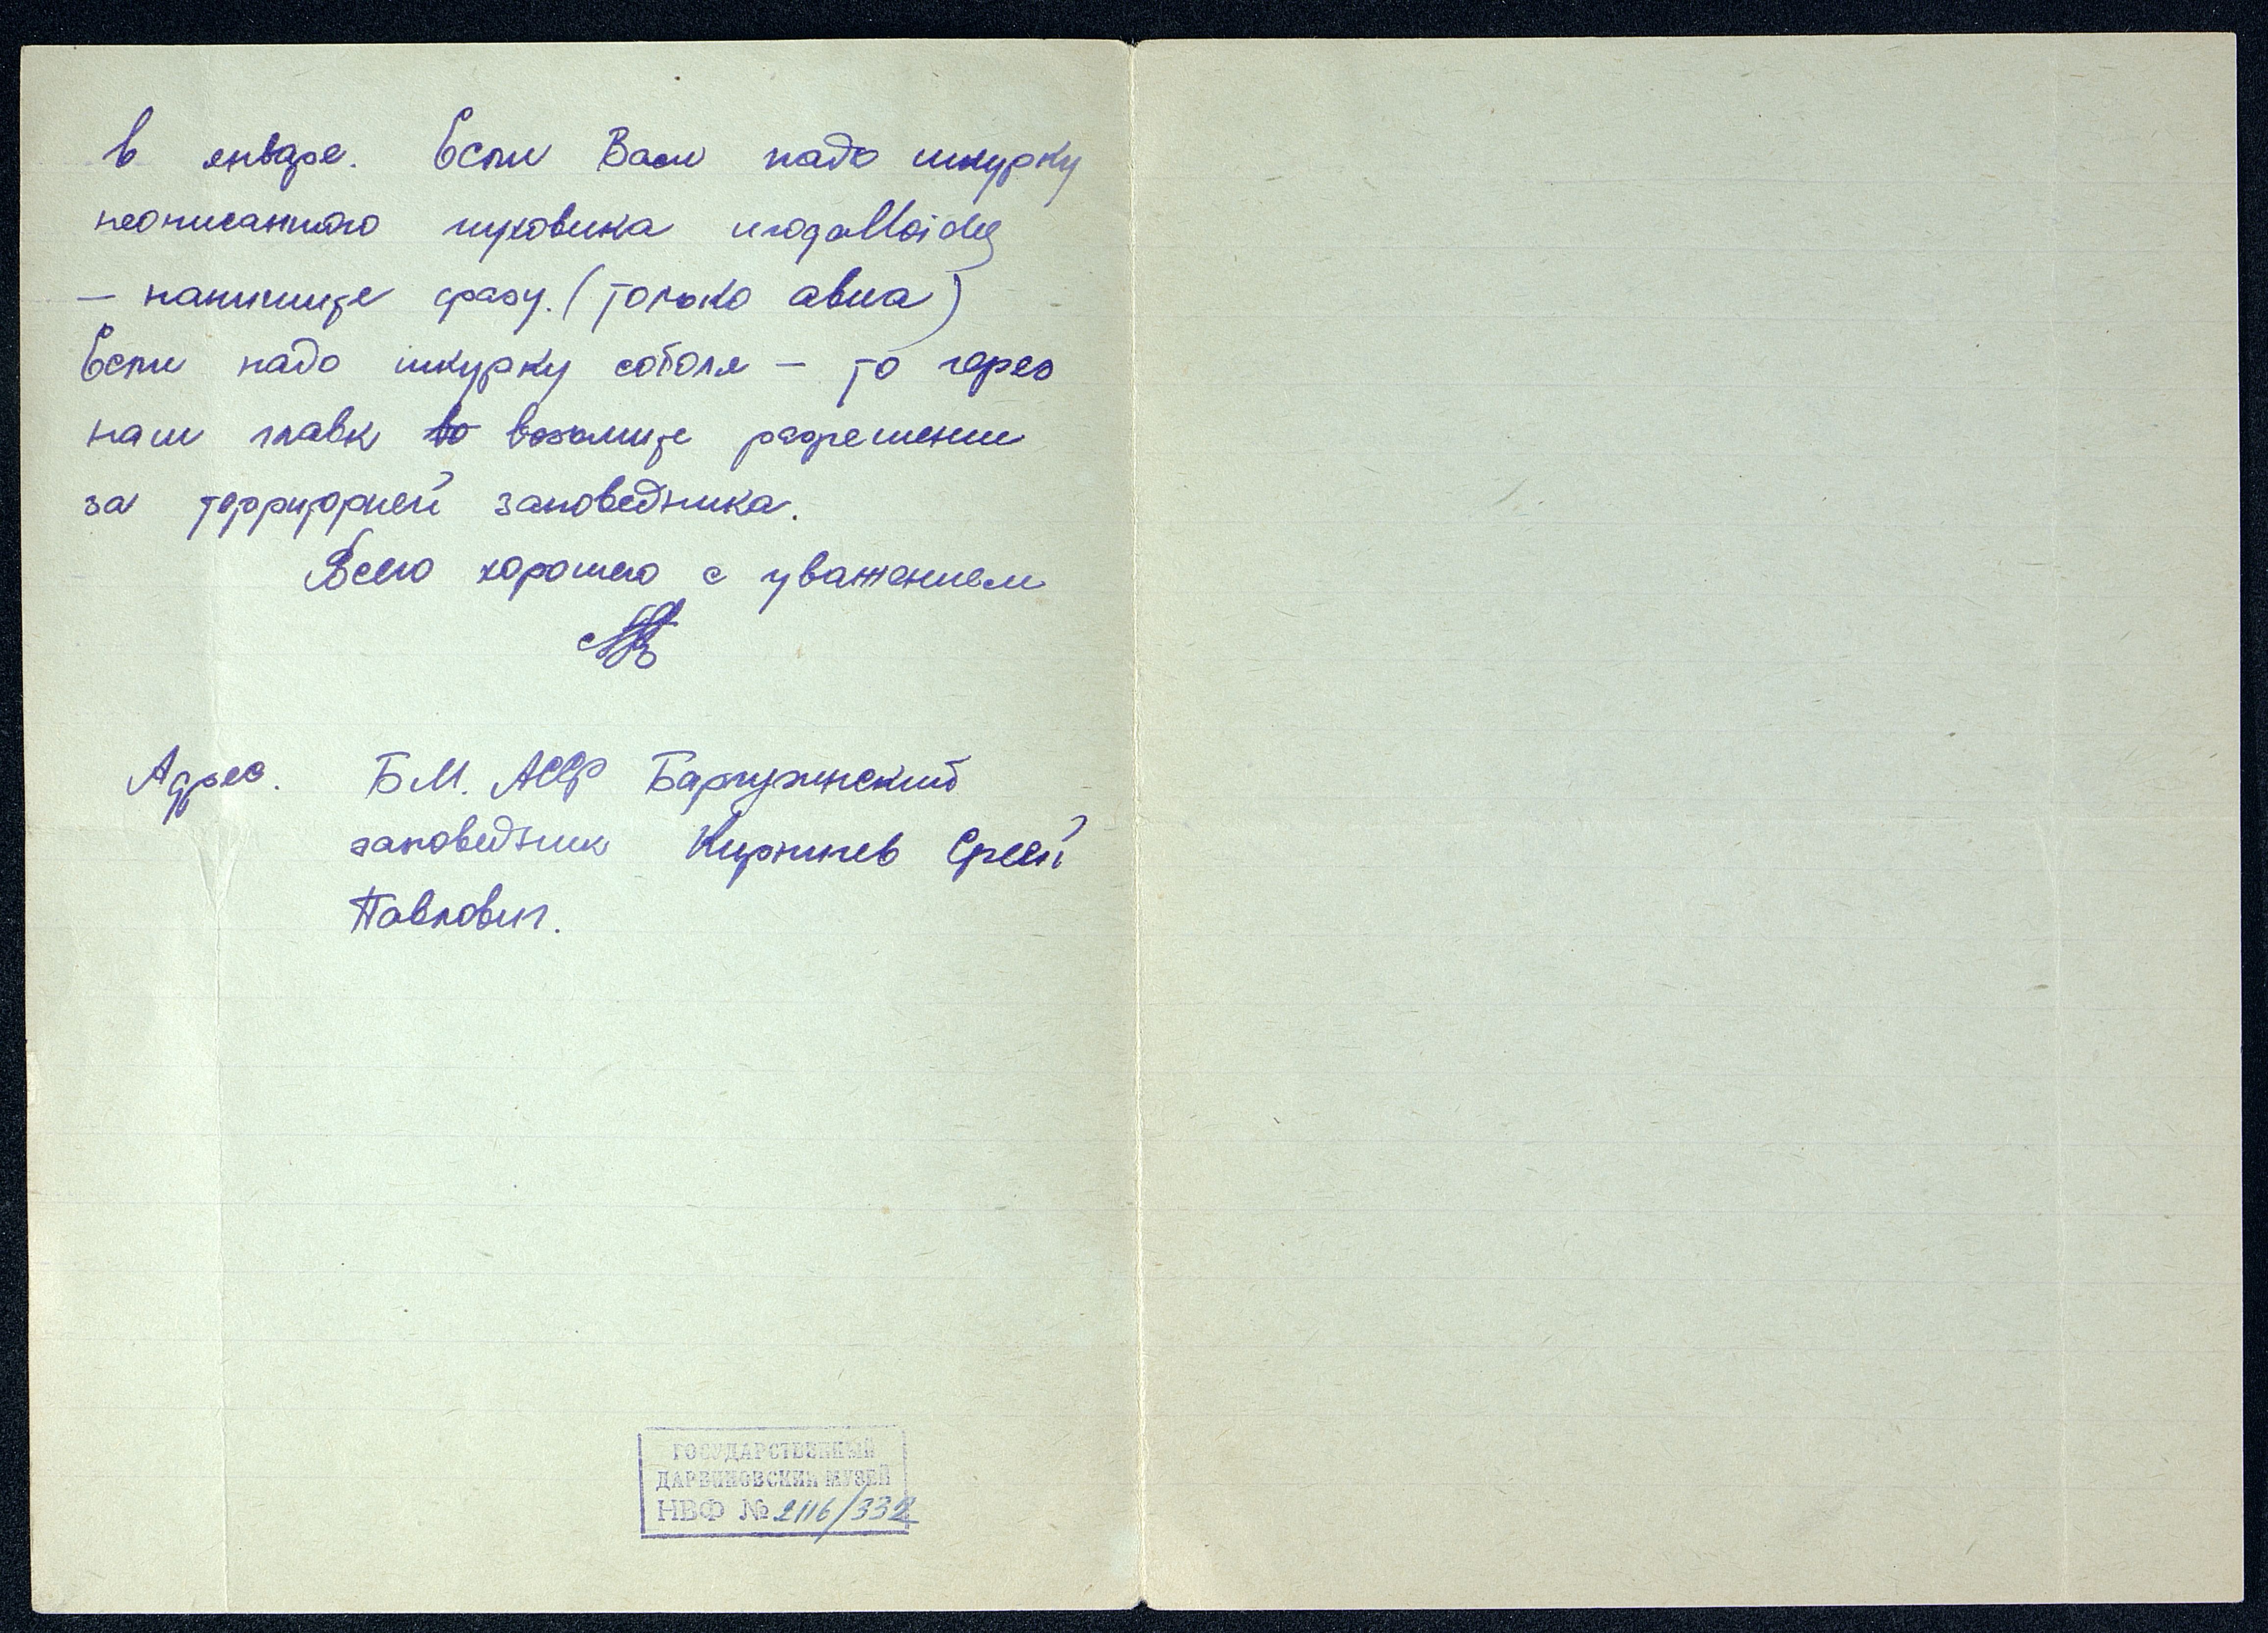 в январе. Если Вам надо шкурку
неописанного пуховика urogalloides
— напишите сразу. (только авиа)
Если надо шкурку соболя — то через
наш главк во возьмите разрешение
за территорией заповедника.
Всего хорошего с уважением
Адрес. БМ. АССР Баргузинский
заповедник Сергей
Павлович.
ГОСУДАРСТВЕННЫЙ
ДАРВИНОВСКИЙ МУЗЕЙ
НВФ № 2116/332